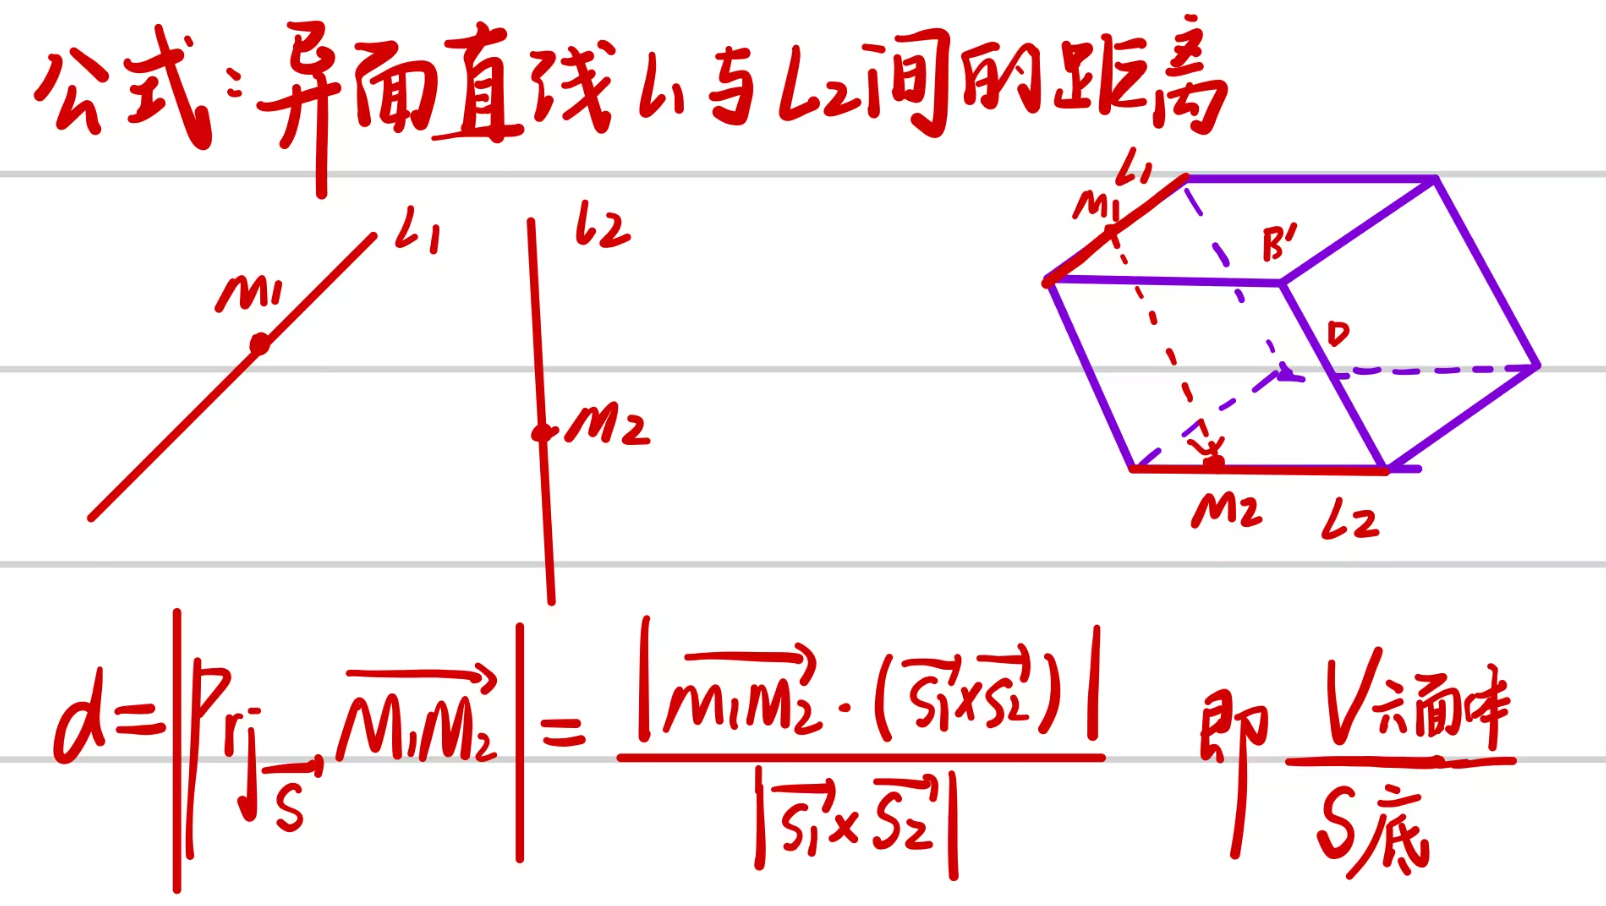 公式:异面直线L1与L2间的距离
L1
L2
M1
M2
L1
M1
B'
D
M2
L2
d=|Prj_{\vec{S}} \vec{M_1M_2}|=\frac{|\vec{M_1M_2}·(\vec{S_1}×\vec{S_2})|}{|\vec{S_1}×\vec{S_2}|} 即 \frac{V六面体}{S底}